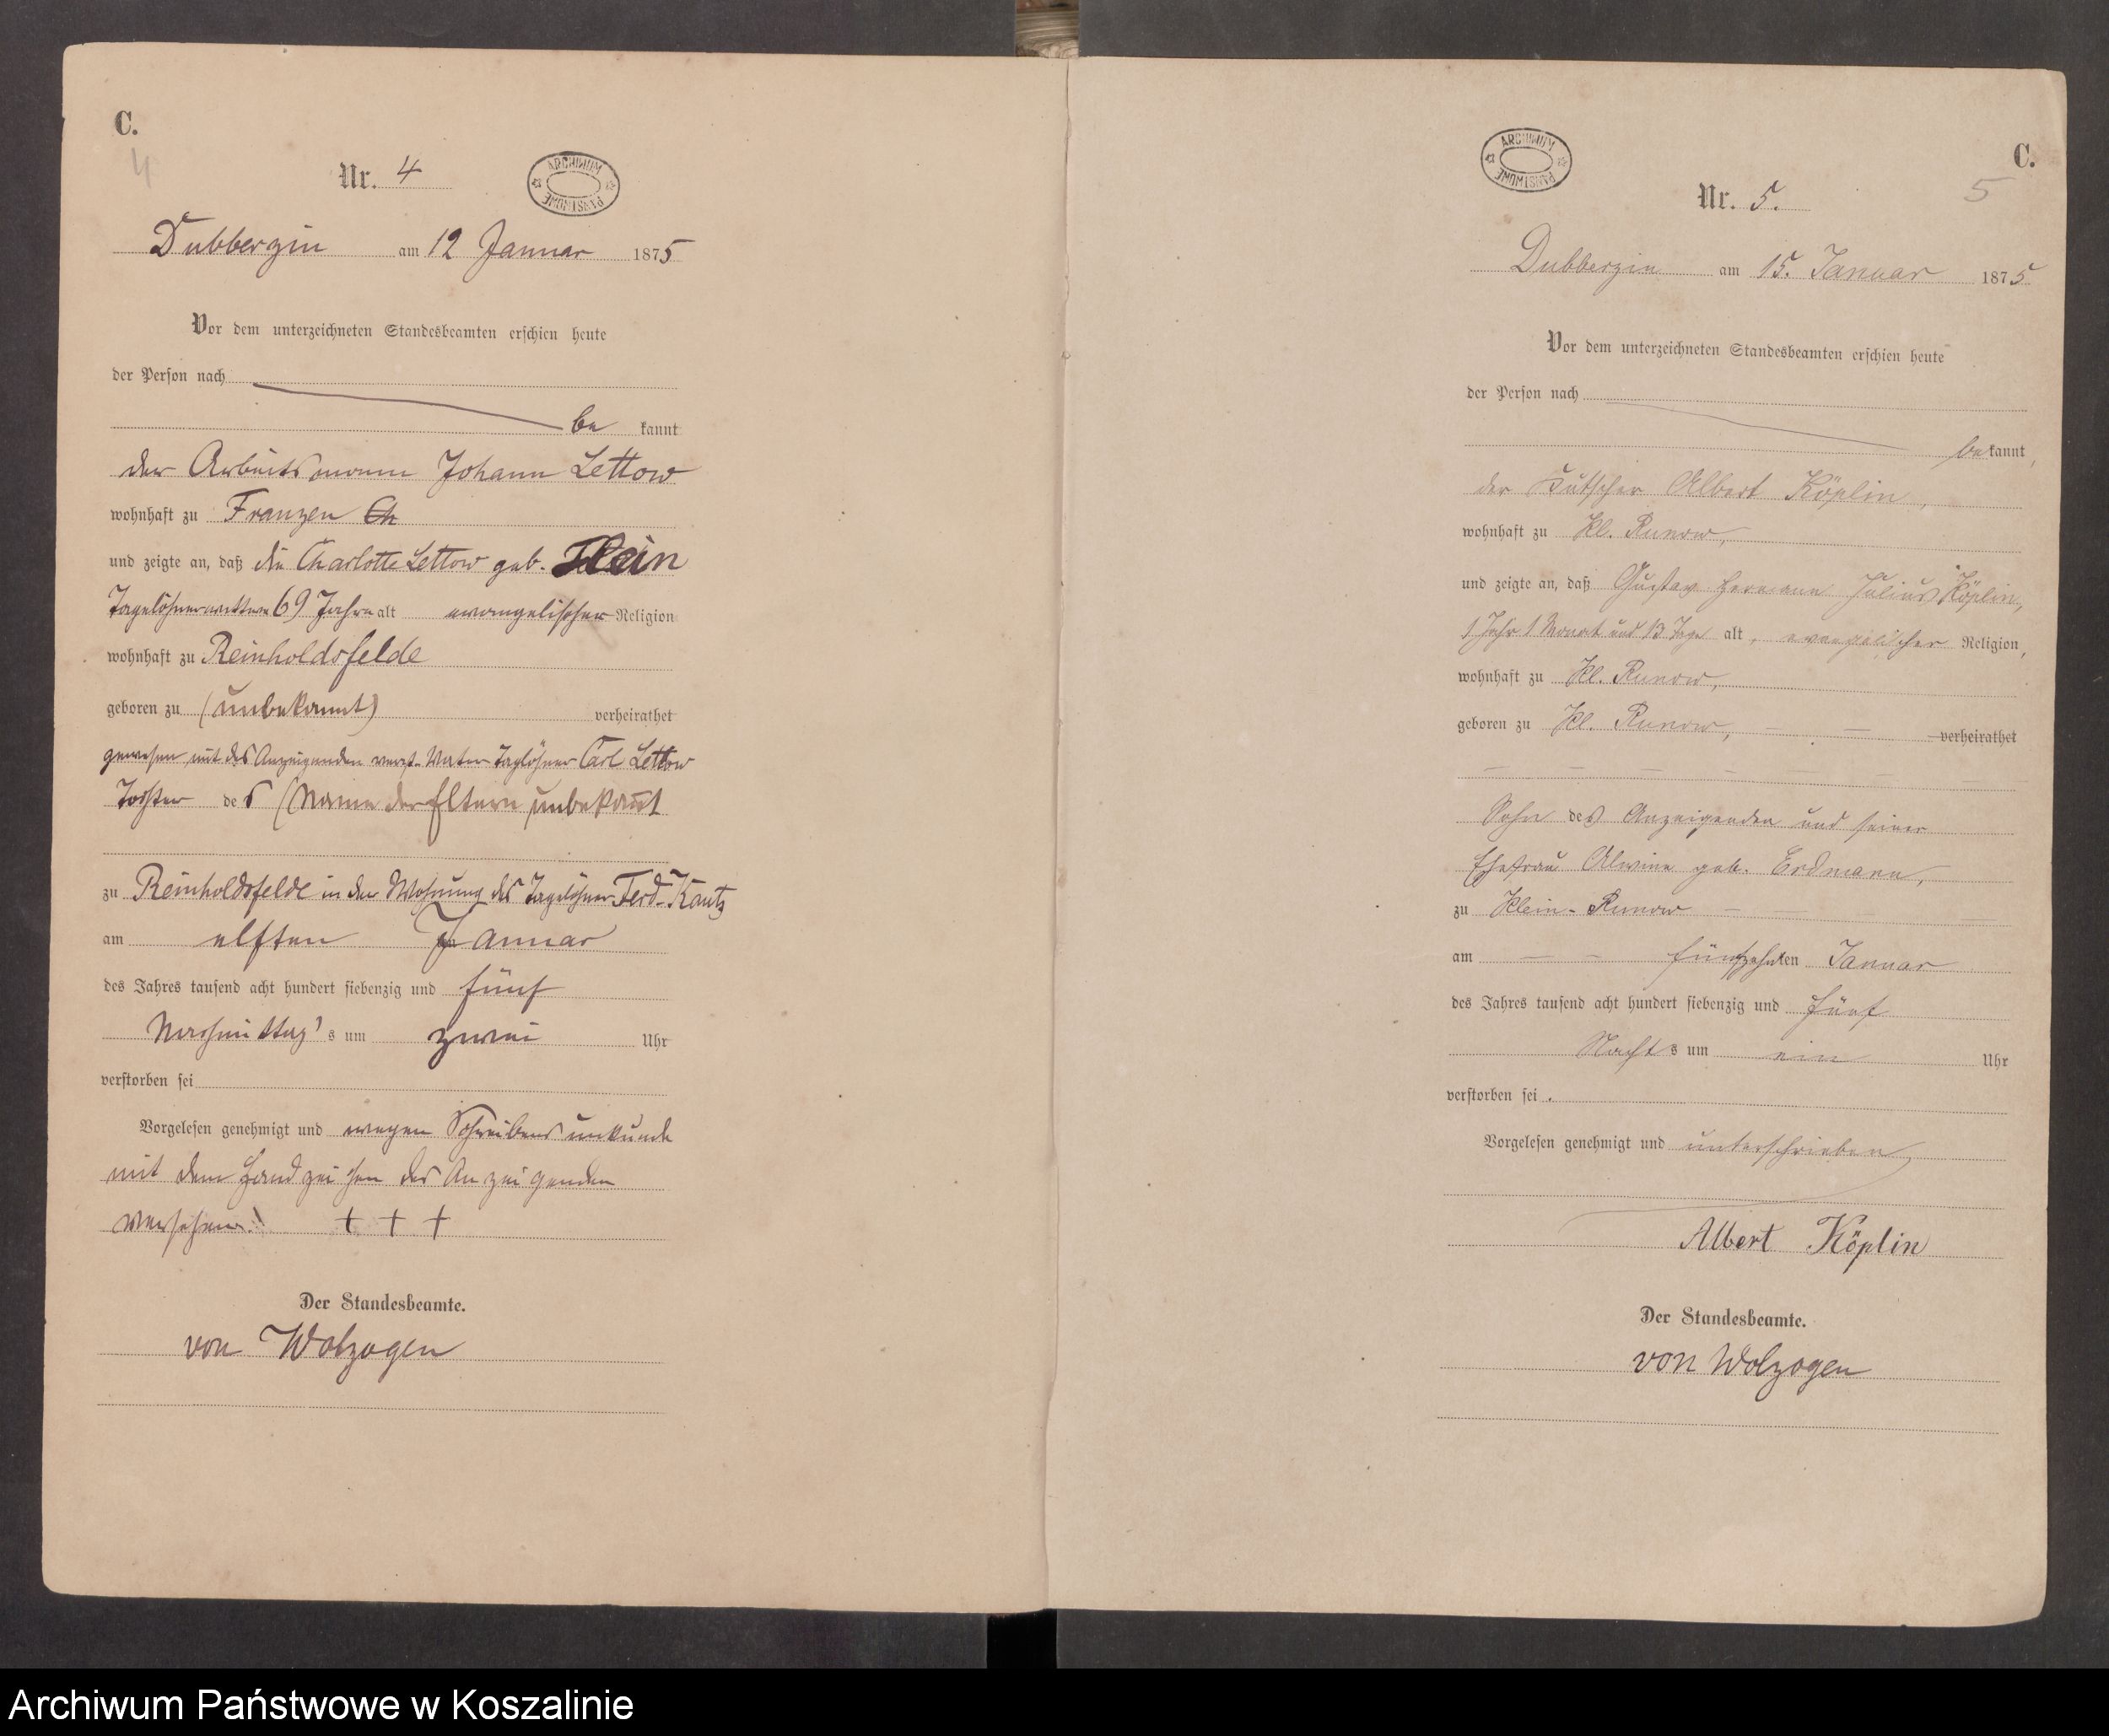 C.
4
Nr. 4
ARCHIWUM PAŃSTWOWE
Dubberzin am 12 Januar 1875
Vor dem unterzeichneten Standesbeamten erschien heute
der Person nach
be kannt
der Arbeitsmann Johann Lettow
wohnhaft zu Franzen
und zeigte an, daß die Charlotte Lettow geb. Klein
69 Jahre alt evangelischer Religion
wohnhaft zu Reinholdsfelde
geboren zu (unbekannt) verheirathet
gewesen mit des Anzeigenden verst. Vater Taglöhner Carl Lettow
Tochter des (Name der Eltern unbekannt
zu Reinholdsfelde in der Wohnung des Tagelöhner Ferd. Kautz
am elften Januar
des Jahres tausend acht hundert siebenzig und fünf
Nachmittag's um zwei Uhr
verstorben sei
Vorgelesen genehmigt und wegen Schreibensunkunde
mit dem Handzeichen des Anzeigenden
versehen. + + +
Der Standesbeamte.
von Wolzogen
ARCHIWUM PAŃSTWOWE
C.
5
Nr. 5.
Dubberzin am 15. Januar 1875
Vor dem unterzeichneten Standesbeamten erschien heute
der Person nach
bekannt,
der Kutscher Albert Köplin,
wohnhaft zu Kl. Runow,
und zeigte an, daß Gustav Hermann Julius Köplin,
1 Jahr 1 Monat und 13 Tage alt, evangelischer Religion,
wohnhaft zu Kl. Runow,
geboren zu Kl. Runow, — — verheirathet
— — — — — —
Sohn des Anzeigenden und seiner
Ehefrau Alwine geb. Erdmann,
zu Klein-Runow — —
am — — fünfzehnten Januar
des Jahres tausend acht hundert siebenzig und fünf
Nachts um ein Uhr
verstorben sei.
Vorgelesen genehmigt und unterschrieben
Albert Köplin
Der Standesbeamte.
von Wolzogen
Archiwum Państwowe w Koszalinie